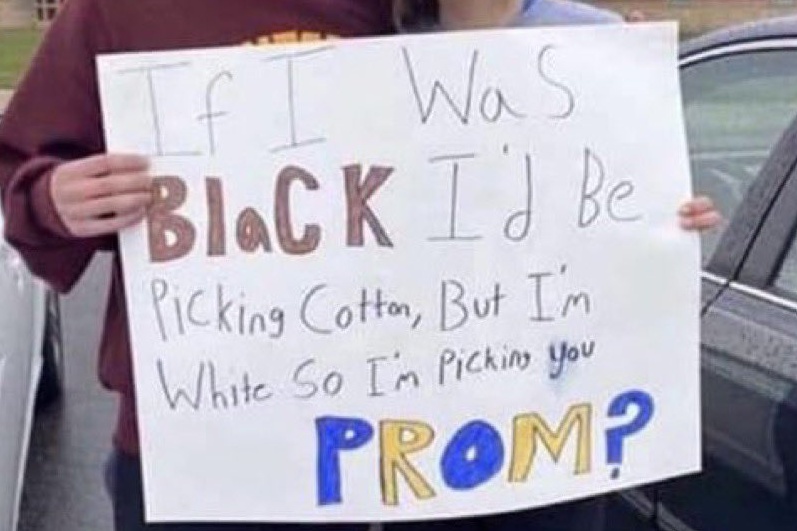 If I Was
BlaCK I'd Be
Picking Cotton, But I'm
White So I'm Picking you
PROM?